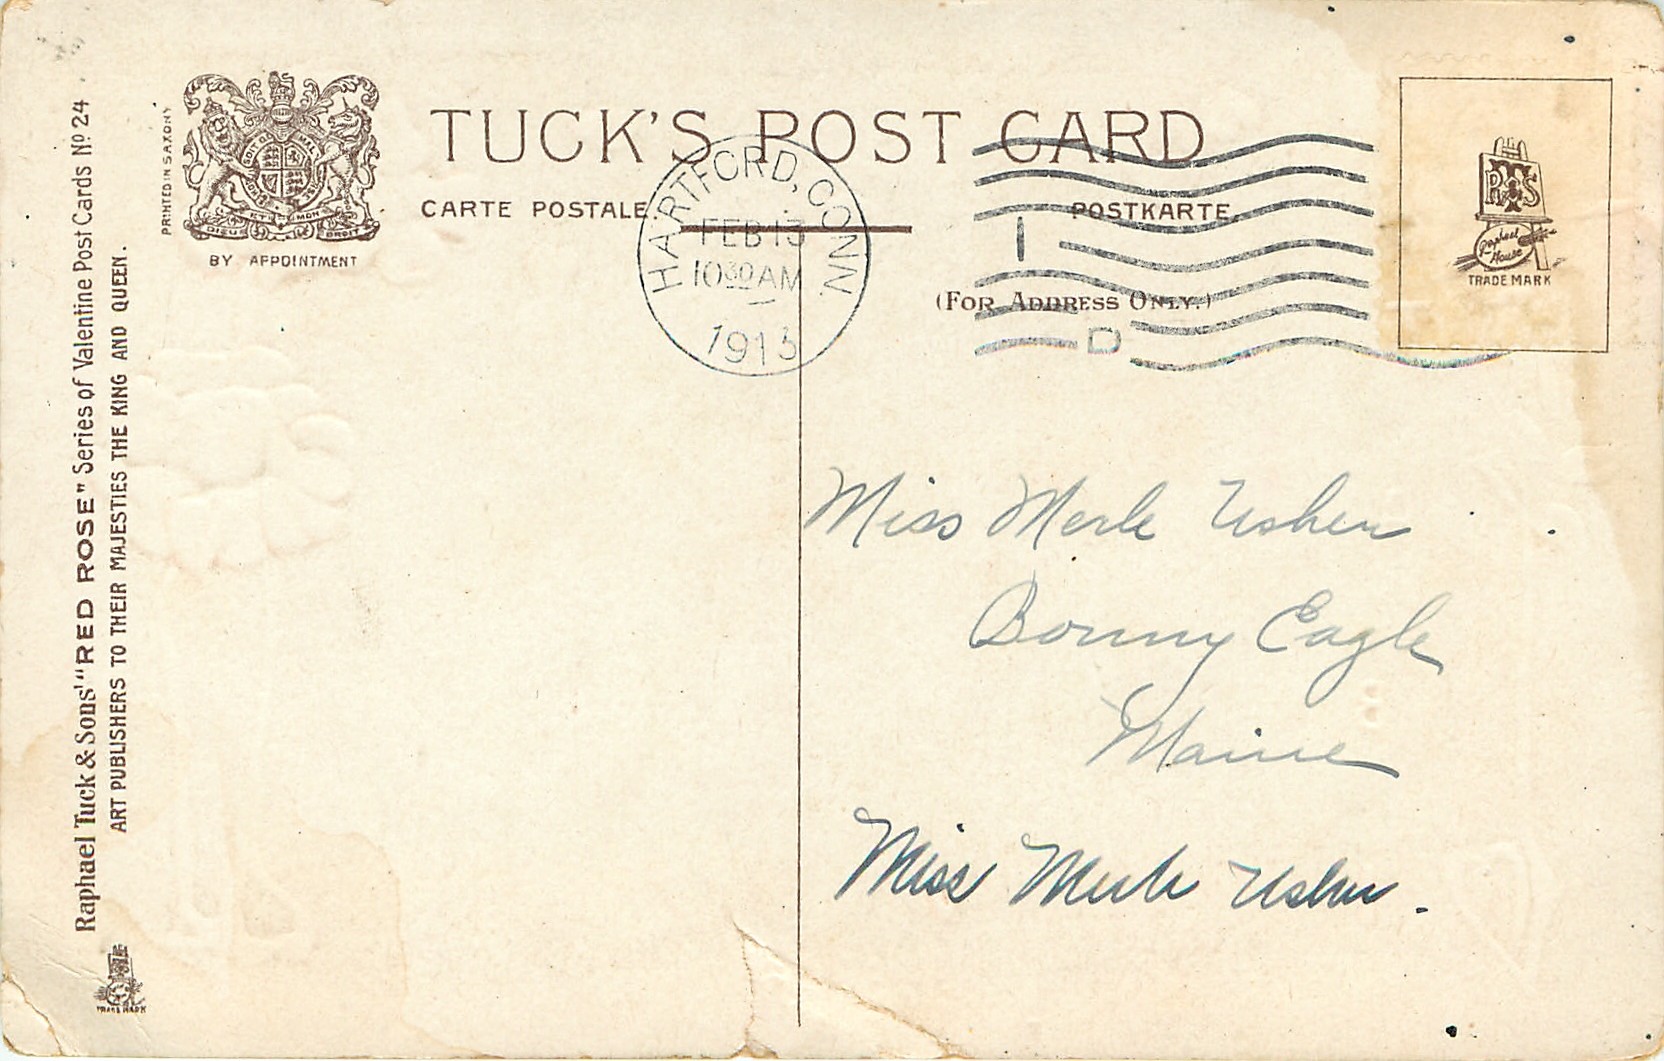 Raphael Tuck & Sons' "RED ROSE" Series of Valentine Post Cards No 24
ART PUBLISHERS TO THEIR MAJESTIES THE KING AND QUEEN.
TRADE MARK
PRINTED IN SAXONY
DIEU ET MON DROIT
BY APPOINTMENT
TUCK'S POST CARD
CARTE POSTALE.
POSTKARTE.
(FOR ADDRESS ONLY.)
HARTFORD, CONN.
FEB 13
10 30 AM
1913
1
D
RTS
Raphael House
TRADE MARK
Miss Merle Usher
Bonny Eagle
Maine
Miss Merle Usher.